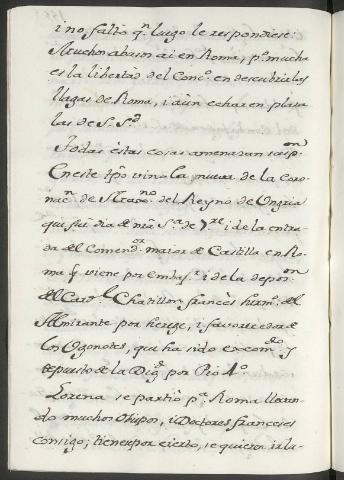 i no faltò qn. luego le respondiese:
Muchos abusos ai en Roma, po. mucha
es la libertad del Conco. en descubrir las
llagas de Roma, i aùn echar en plaza
las de S. Sd.
Todas estas cosas amenazan suspon.
En este tpo. vino la nueva de la Coro-
macn. de Maxno. del Reyno de Ungria
que fuè dia de nra Sa. de 7re. i de la entra-
da del Comendor. maior de Castilla en Ro-
ma q. viene por Embaxr. i de la deposon.
del Cardl. Chatillon francès hermo. del
Almirante por herege, i favorecedor de
los Ogonotes, que ha sido excomdo. y
depuesto de la Digd. por Pio 4o.
Lorena se partiò pa. Roma llevan-
do muchos Obispos, i Doctores franceses
consigo; tienen por cierto, se quieren iula-